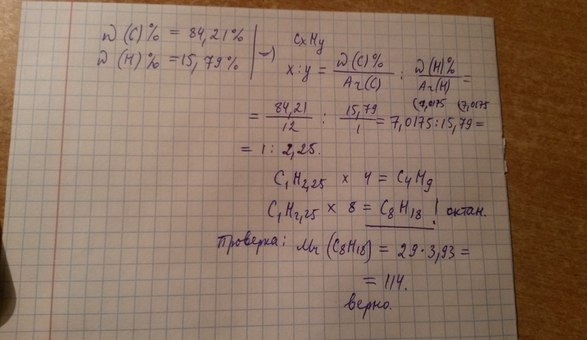 W(C)% = 84,21%
W(H)% = 15,79%
CxHy
x:y = W(C)%/Ar(C) : W(H)%/Ar(H) =
= 84,21/12 : 15,79/1 = 7,0175 : 15,79 =
(7,0175 (7,0175
= 1 : 2,25.
C1H2,25 x 4 = C4H9
C1H2,25 x 8 = C8H18 ! октан.
Проверка: Mr (C8H18) = 29·3,93 =
= 114.
верно.